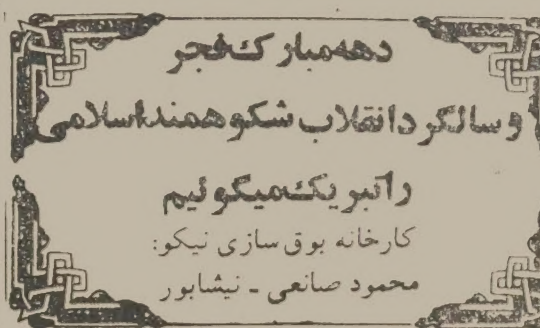 دهه مبارک فجر
و سالگرد انقلاب شکوهمند اسلامی
را تبریک میگوئیم
کارخانه بوق سازی نیکو:
محمود صانعی - نیشابور